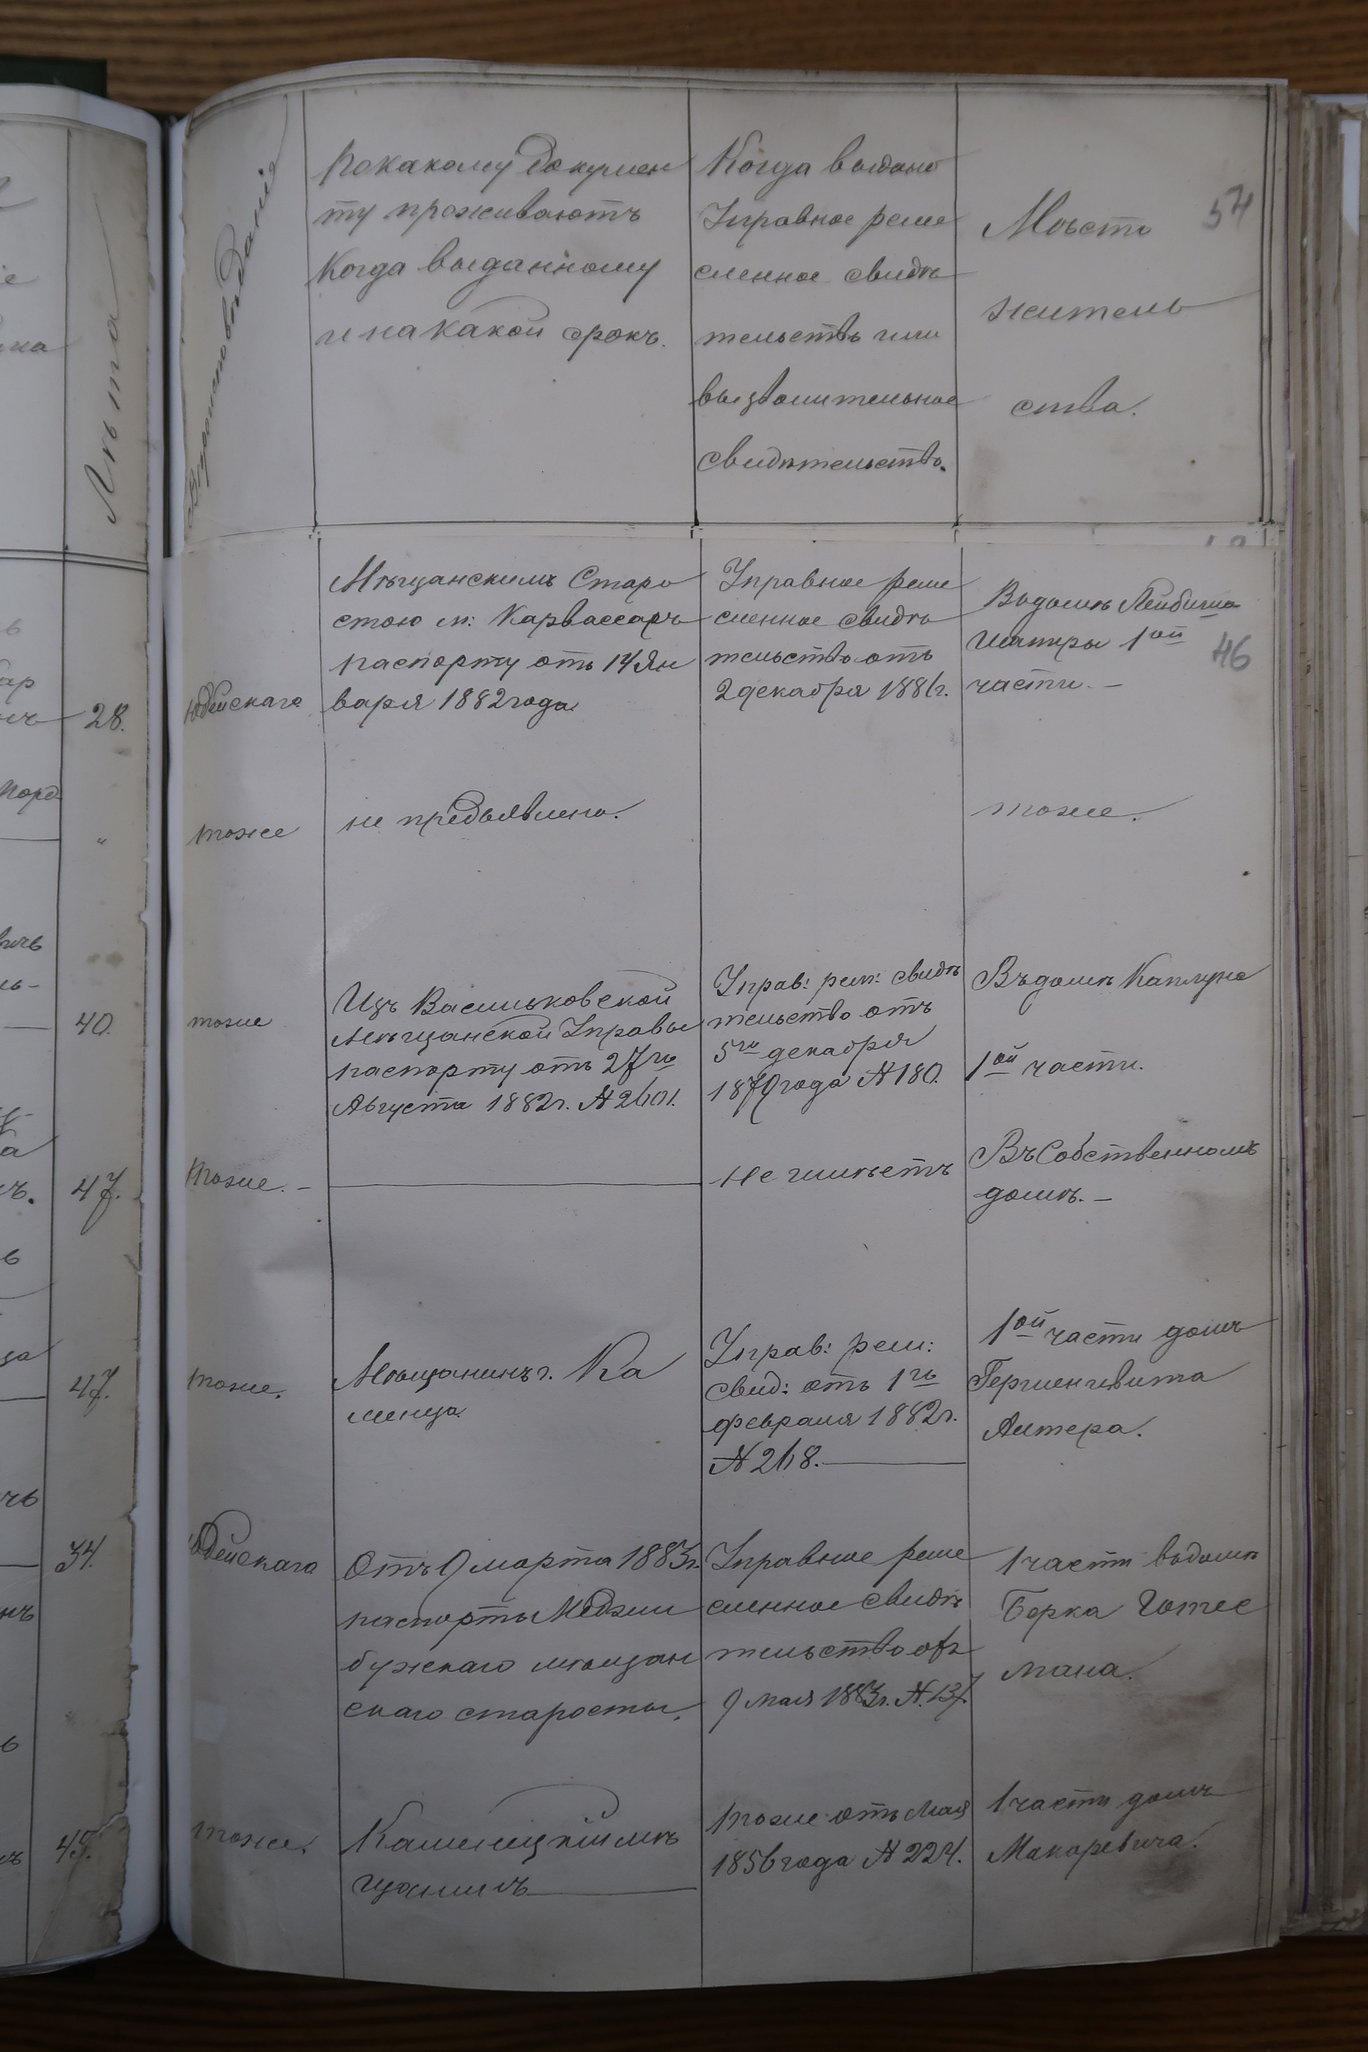 Лѣта
Вѣроисповѣданія
По какому докумен
ту проживаютъ
Когда выданному
и на какой срокъ.
Когда выдано
Управное реме
сленное свидѣ
тельство или
вызволительное
свидѣтельство.
Мѣсто
жительь
ства.
54
28.
Юдейскаго
Мѣщанскимъ Старо
стою м: Карвассаръ
паспорту отъ 14 Ян
варя 1882 года
Управное реме
сленное свидѣ
тельство отъ
2 декабря 1881 г.
Въ домѣ Лейбиша
Шапиры 1ой
части. —
46
"
тоже
не предъявлено.
тоже.
40.
тоже
Изъ Васильковской
Мѣщанской Управы
паспорту отъ 27го
Августа 1882 г. № 2601.
Управ: рем: свидѣ
тельство отъ
5го декабря
1879 года № 180.
Въ домѣ Каплуна
1ой части.
47.
тоже. —
Не имѣетъ
Въ Собственномъ
домѣ. —
47.
тоже.
Мѣщанинъ г. Ка
менца
Управ: рем:
свид: отъ 1го
февраля 1882 г.
№ 268.
1ой части домъ
Гершенгивита
Алтера.
34
Юдейскаго
Отъ 9 марта 1883 г.
паспорты Меджи
бужскаго мѣщан
скаго старосты.
Управное реме
сленное свидѣ
тельство отъ
9 мая 1883 г. № 137.
1 части въ домѣ
Берка Готес
мана.
45.
тоже.
Каменецкій мѣ
щанинъ
тоже отъ Мая
1856 года № 224.
1 части домъ
Макаревича.